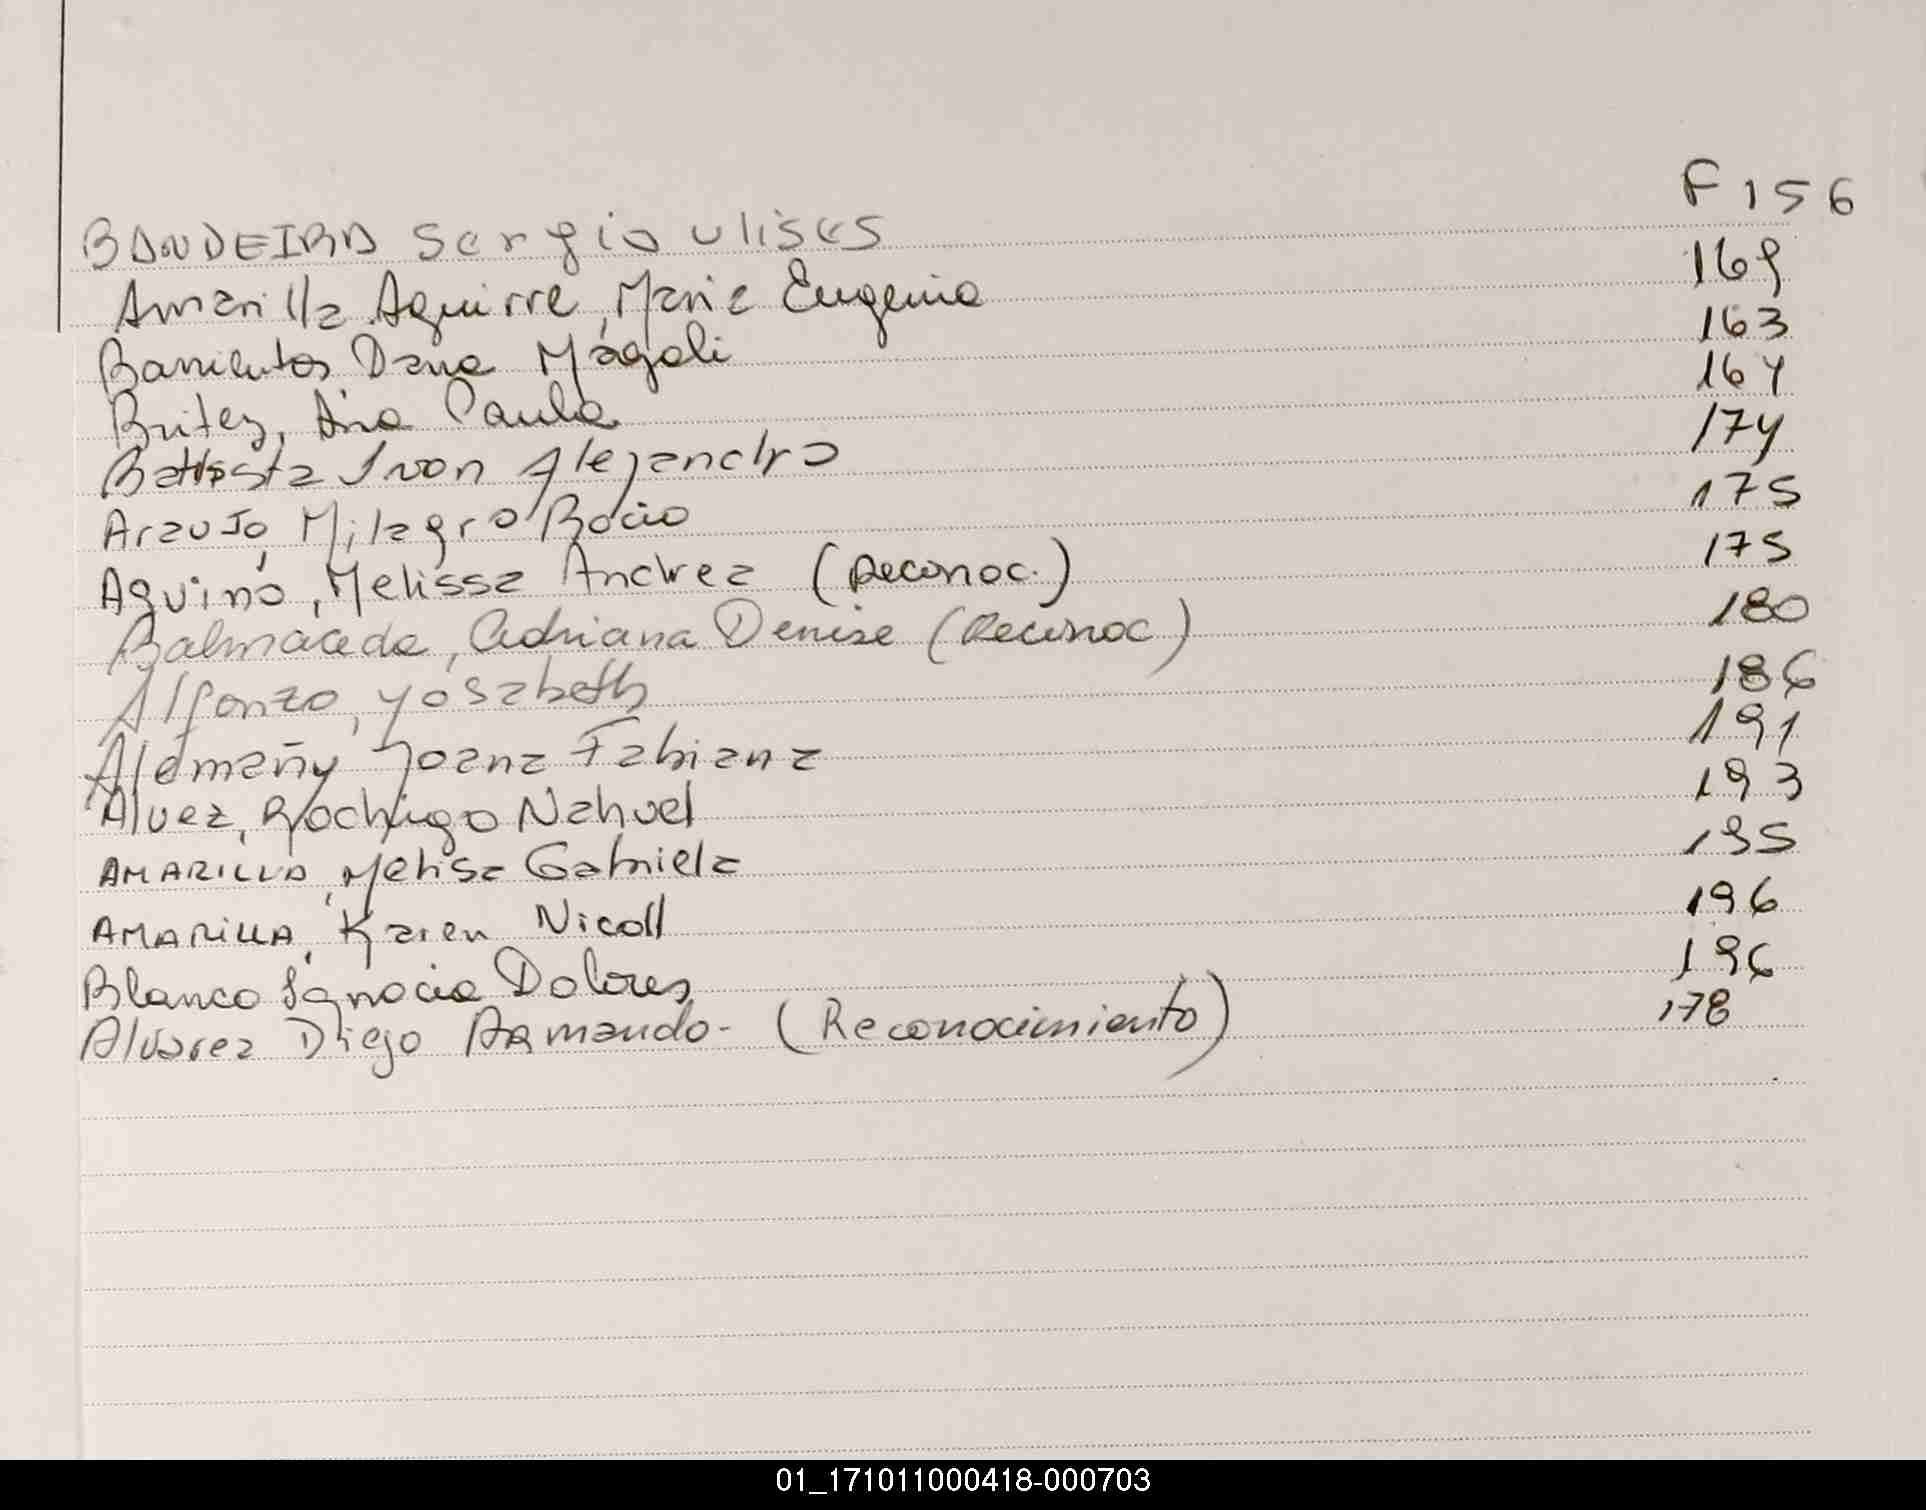 BANDEIRA Sergio ulises F 156
Amarilla Aguirre, Maria Eugenia 169
Barrientos, Dana Magali 163
Britez, Ana Paula 164
Battista Ivon Alejandra 174
Araujo, Milagro Rocio 175
Aquino, Melissa Andrea (Reconoc.) 175
Balmaceda, Adriana Denise (Reconoc) 180
Alfonzo, Yosabeth 186
Alemañy Joana Fabiana 191
Alvez, Rodrigo Nahuel 193
AMARILLA, Melisa Gabriela 195
AMARILLA, Karen Nicoll 196
Blanco Ignacia Dolores 196
Alvarez Diego Armando - (Reconocimiento) 178
01_171011000418-000703